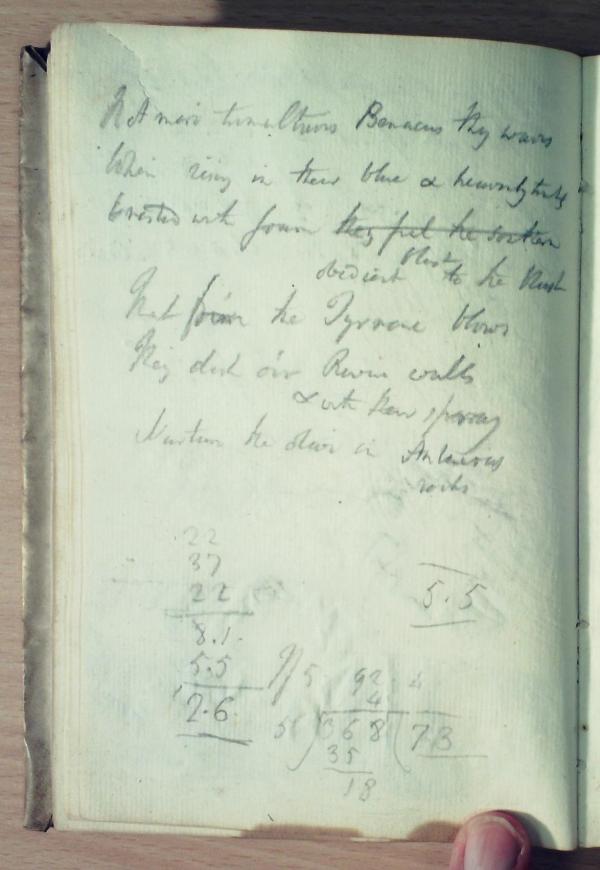 Not more tumultuous Benacus thy waves
When rising in their blue & heavenly tints
Crested with foam they feel the southern
blast
obedient to the
That from the Tyrrene blows
They dash oér Riven walls
& with their spray
Nurture the olive in
rocks
22
37
22
8.1.
5.5
2.6
5.5
If 5 92 4
4
5 ) 368 ( 73
35
18